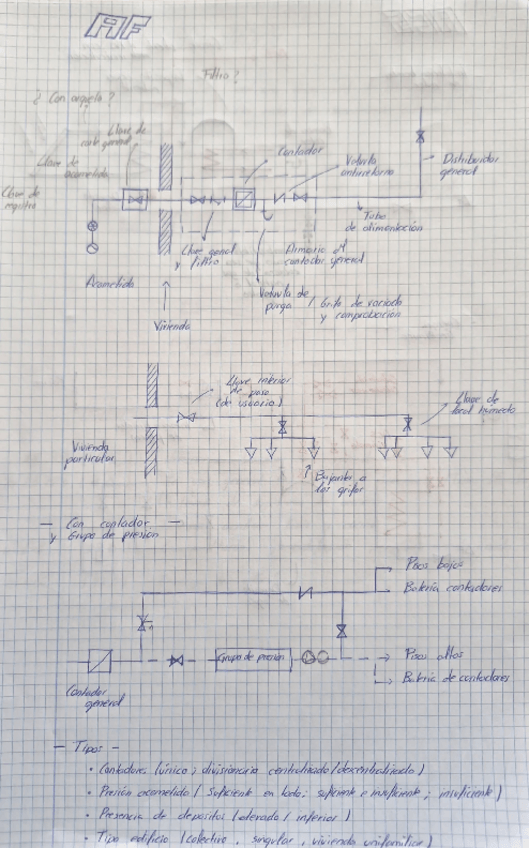 AF
Filtro?
¿Con arqueta?
Llave de
corte general
Llave de
acometida
Llave de
registro
Contador
Valvula
antirretorno
Distribuidor
general
Tubo
de alimentación
Llave general
y filtro
Armario
contador general
Acometida
Valvula de
purga / Grifo de vaciado
y comprobación
Vivienda
Llave interior
de paso
(de usuario)
Llave de
local humedo
Vivienda
particular
Bajantes a
los grifos
— Con contador —
y Grupo de presión
Pisos bajos
Batería contadores
Grupo de presión
Pisos altos
Batería de contadores
Contador
general
— Tipos —
• Contadores (único; divisionario centralizado/decentralizado)
• Presión acometida (suficiente en todo; suficiente e insuficiente; insuficiente)
• Presencia de depositos (elevado / inferior)
• Tipo edificio (colectivo, singular, vivienda unifamiliar)